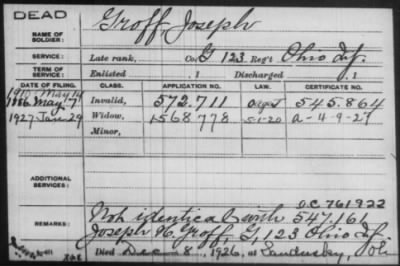 DEAD
NAME OF SOLDIER: Groff, Joseph
SERVICE: Late rank, Co. G 123 Reg't Ohio Inf.
TERM OF SERVICE: Enlisted , 1 Discharged , 1
DATE OF FILING. CLASS. APPLICATION NO. LAW. CERTIFICATE NO.
May 14
1886 May 7 Invalid, 572.711 545.864
1927 Jan 29 Widow, 1568778 5-1-20 a-4-9-27
Minor,
ADDITIONAL SERVICES:
O.C 761922
REMARKS: Not identical with 547.161
Joseph H. Groff, G, 123 Ohio Inf.
Died Dec 8, 1926, at Sandusky, O.